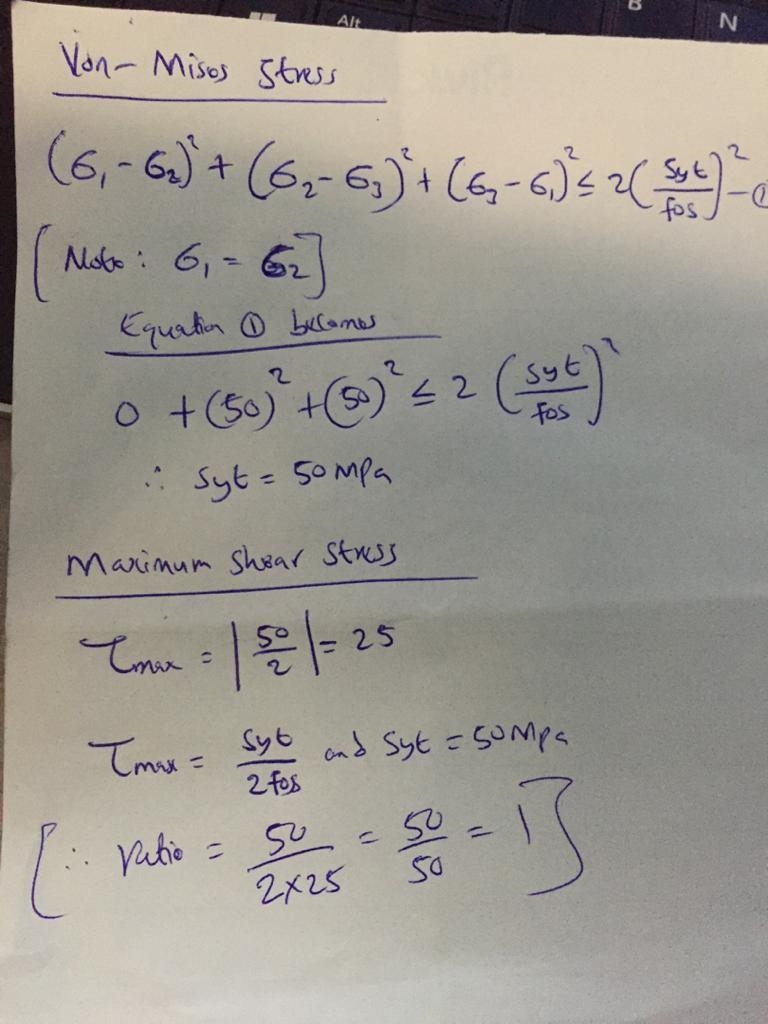 Alt
B
N
Von-Mises Stress
(σ₁-σ₂)² + (σ₂-σ₃)² + (σ₃-σ₁)² ≤ 2(Syt/fos)² - ①
[Note: σ₁ = σ₂]
Equation ① becomes
0 + (50)² + (50)² ≤ 2 (Syt/fos)²
∴ Syt = 50 MPa
Maximum Shear Stress
τmax = |50/2| = 25
τmax = Syt/2fos and Syt = 50 MPa
[∴ Ratio = 50/2×25 = 50/50 = 1]